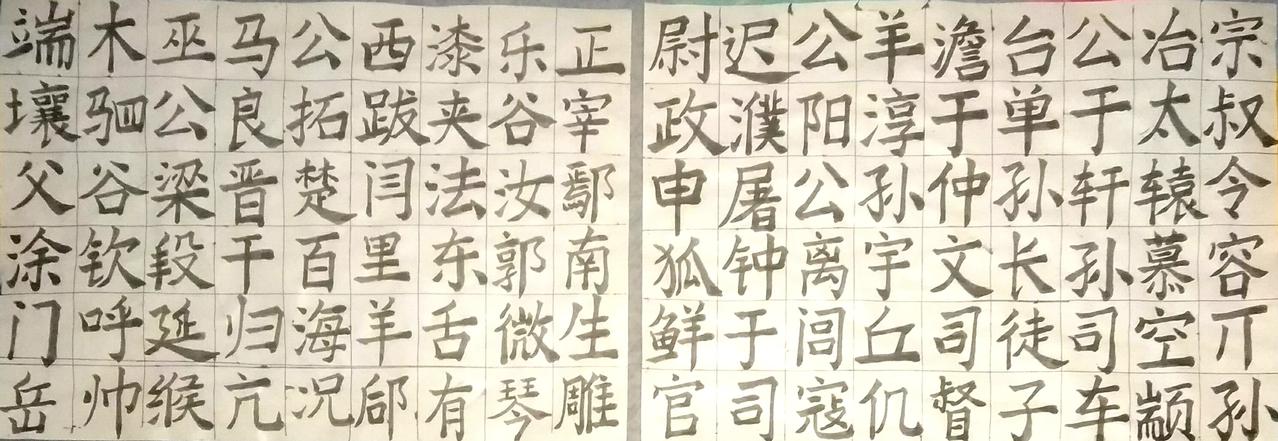 尉迟公羊澹台公冶宗
政濮阳淳于单于太叔
申屠公孙仲孙轩辕令
狐钟离宇文长孙慕容
鲜于闾丘司徒司空丌
官司寇仉督子车颛孙
端木巫马公西漆乐正
壤驷公良拓跋夹谷宰
父谷梁晋楚闫法汝鄢
涂钦段干百里东郭南
门呼延归海羊舌微生
岳帅缑亢况郈有琴雕